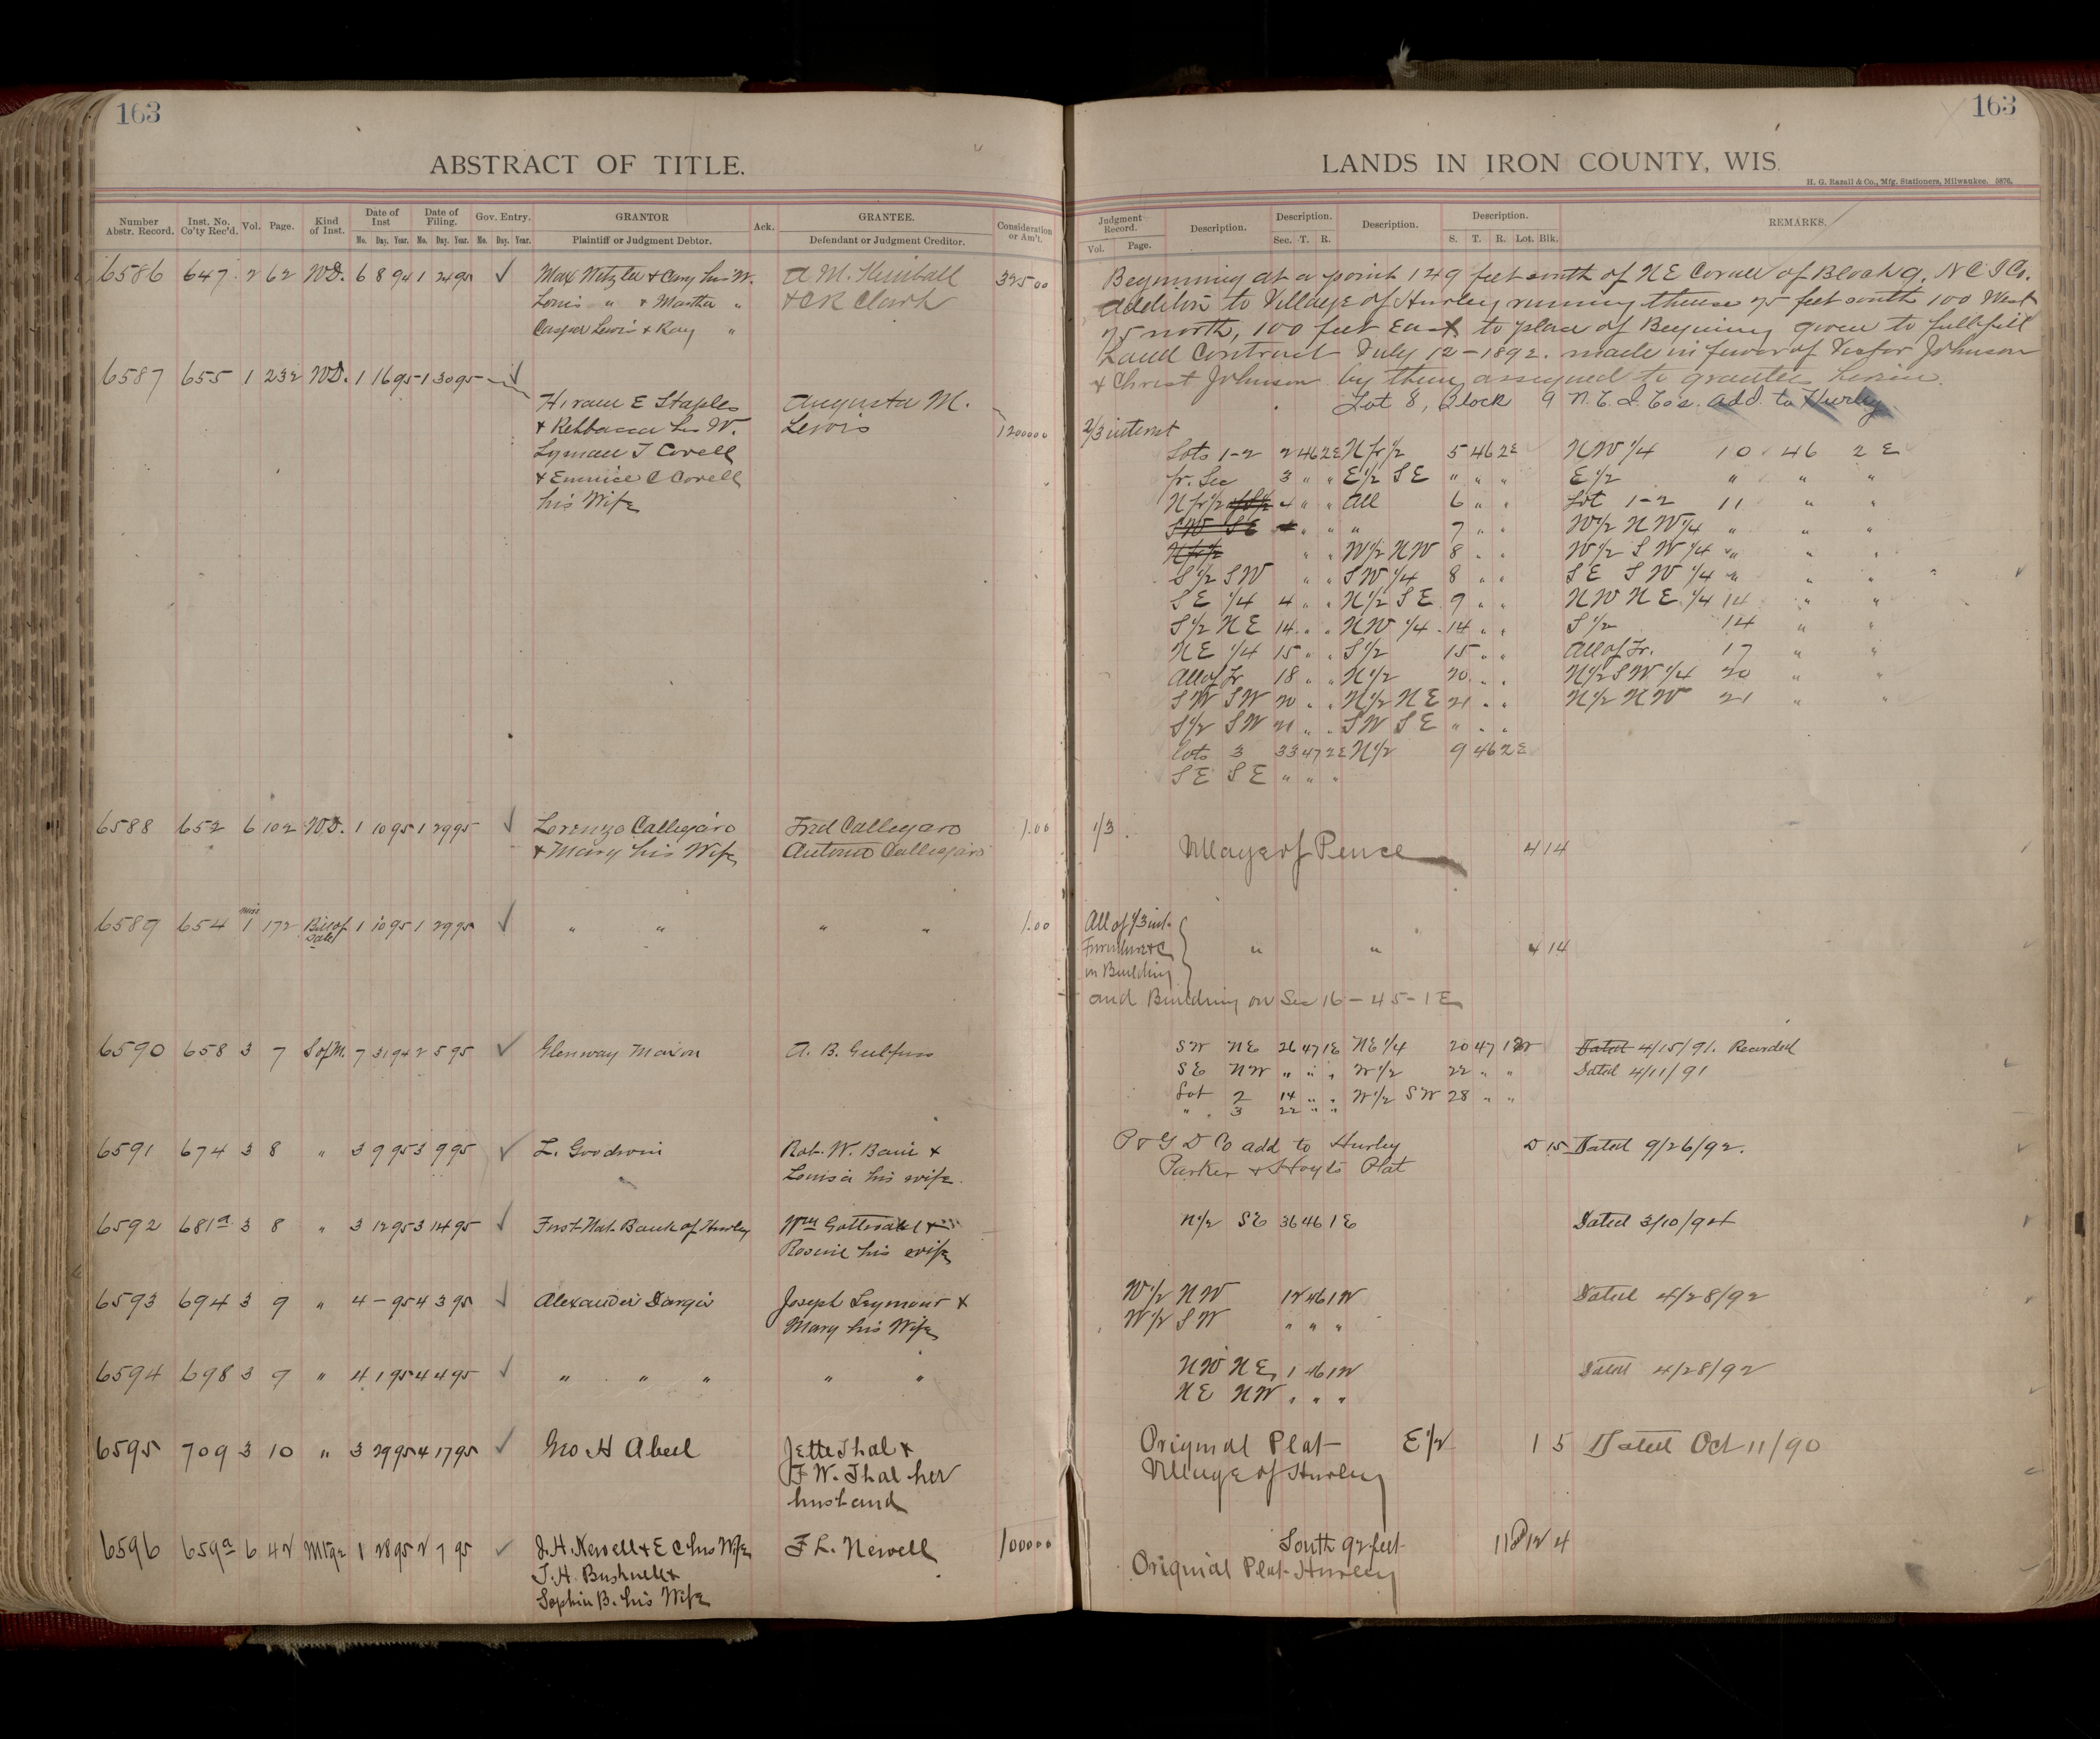 163
163
ABSTRACT OF TITLE.
LANDS IN IRON COUNTY, WIS.
H. G. Razall & Co., Mfg. Stationers, Milwaukee. 5876.
Number Abstr. Record. Inst. No. Co'ty Rec'd. Vol. Page. Kind of Inst. Date of Inst Mo. Day. Year. Date of Filing. Mo. Day. Year. Gov. Entry. Mo. Day. Year. GRANTOR Plaintiff or Judgment Debtor. Ack. GRANTEE. Defendant or Judgment Creditor. Consideration or Am't.
Judgment Record. Vol. Page. Description. Description. Sec. T. R. Description. Description. S. T. R. Lot. Blk. REMARKS.
6586 647 2 62 W.D. 6 8 94 1 24 95 ✓ Max & his W. A M. Kimball 325 00
Louis " & Martha " & C R Clark
Casper Lewis & Ray "
Beginning at a point 149 feet south of N E Corner of Block 9, N C I Co.
Addition to Village of Hurley running thence 75 feet south 100 West
75 north, 100 feet East to place of Beginning given to fullfill
Land Contract July 12-1892. made in favor of Victor Johnson
& Christ Johnson by them assigned to grantees herein.
Lot 8, Block 9 N. C. I. Co's. Add. to Hurley
6587 655 1 232 W.D. 1 16 95 1 30 95 ✓
Hiram E Staples Augusta M.
& his W. Lewis 12000 00 2/3 interest
Lyman T Covell
& Eunice C Covell
his Wife
Lots 1-2 2 46 2E N fr 1/2 5 46 2E NW 1/4 10 46 2 E
fr. Sec 3 " " E 1/2 SE " " " E 1/2 " " "
N fr 1/2 4 " " All 6 " " Lot 1-2 11 " "
SW SE 4 " " " 7 " " W 1/2 NW 1/4 " " "
N fr 1/2 " " W 1/2 NW 8 " " W 1/2 SW 1/4 " " "
S 1/2 SW " " SW 1/4 8 " " SE SW 1/4 " " "
SE 1/4 4 " " N 1/2 SE 9 " " NW NE 1/4 14 " "
S 1/2 NE 14 " " NW 1/4 14 " " S 1/2 14 " "
NE 1/4 15 " " S 1/2 15 " " All of Fr. 17 " "
All of Fr 18 " " N 1/2 20 " " N 1/2 SW 1/4 20 " "
SW SW 20 " " N 1/2 NE 21 " " N 1/2 NW 21 " "
S 1/2 SW 21 " " SW SE " " "
Lots 3 33 47 2E N 1/2 9 46 2E
SE SE " " "
6588 652 6 102 W.D. 1 10 95 1 29 95 ✓ Lorenzo Callegaro Fred Callegaro 1.00 1/3
& Mary his Wife Antonio Callegaro Village of Pence 4 14
6589 654 misc 1 172 Bill of Sale 1 10 95 1 29 95 ✓ " " " " 1.00 All of 1/3 int.
Furniture & C " " 4 14
in Building
and Building on Sec 16 - 45 - 1 E
6590 658 3 7 S of M. 7 31 94 2 5 95 ✓ Glenway Maxon A. B. SW NE 26 47 1E NE 1/4 20 47 1W Dated 4/15/91. Recorded
SE NW " " " W 1/2 22 " " Dated 4/11/91
Lot 2 14 " " W 1/2 SW 28 " "
" 3 22 " "
6591 674 3 8 " 3 9 95 3 9 95 ✓ L. Goodwin Rob. W. & P & G D Co add to Hurley D 15 Dated 9/26/92.
Louisa his wife. Parker & Hoyts Plat
6592 681a 3 8 " 3 12 95 3 14 95 ✓ First Nat. Bank of Hurley Wm & N 1/2 SE 36 46 1E Dated 3/10/94
his wife
6593 694 3 9 " 4 - 95 4 3 95 ✓ Alexander Joseph Seymour & W 1/2 NW 12 46 1W Dated 4/28/92
Mary his Wife W 1/2 SW " " "
6594 698 3 9 " 4 1 95 4 4 95 ✓ " " " " " NW NE 1 46 1W Dated 4/28/92
NE NW " " "
6595 709 3 10 " 3 29 95 4 17 95 ✓ Geo H Abeel Jette Thal & Original Plat E 1/2 1 5 Dated Oct 11/90
F W. Thal her Village of Hurley
husband
6596 659a 6 42 Mtge 1 28 95 2 7 95 ✓ J. H. Newell & E C his Wife F L. Newell 1000 00 South 92 feet 11 & 12 4
T. H. Bushnell & Original Plat Hurley
Sophia B. his Wife